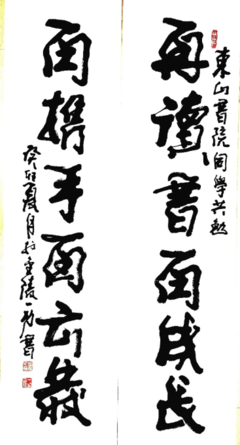 東山書院同學共勉
再讀書再成長
再携手再出發
癸卯夏月於金陵一書